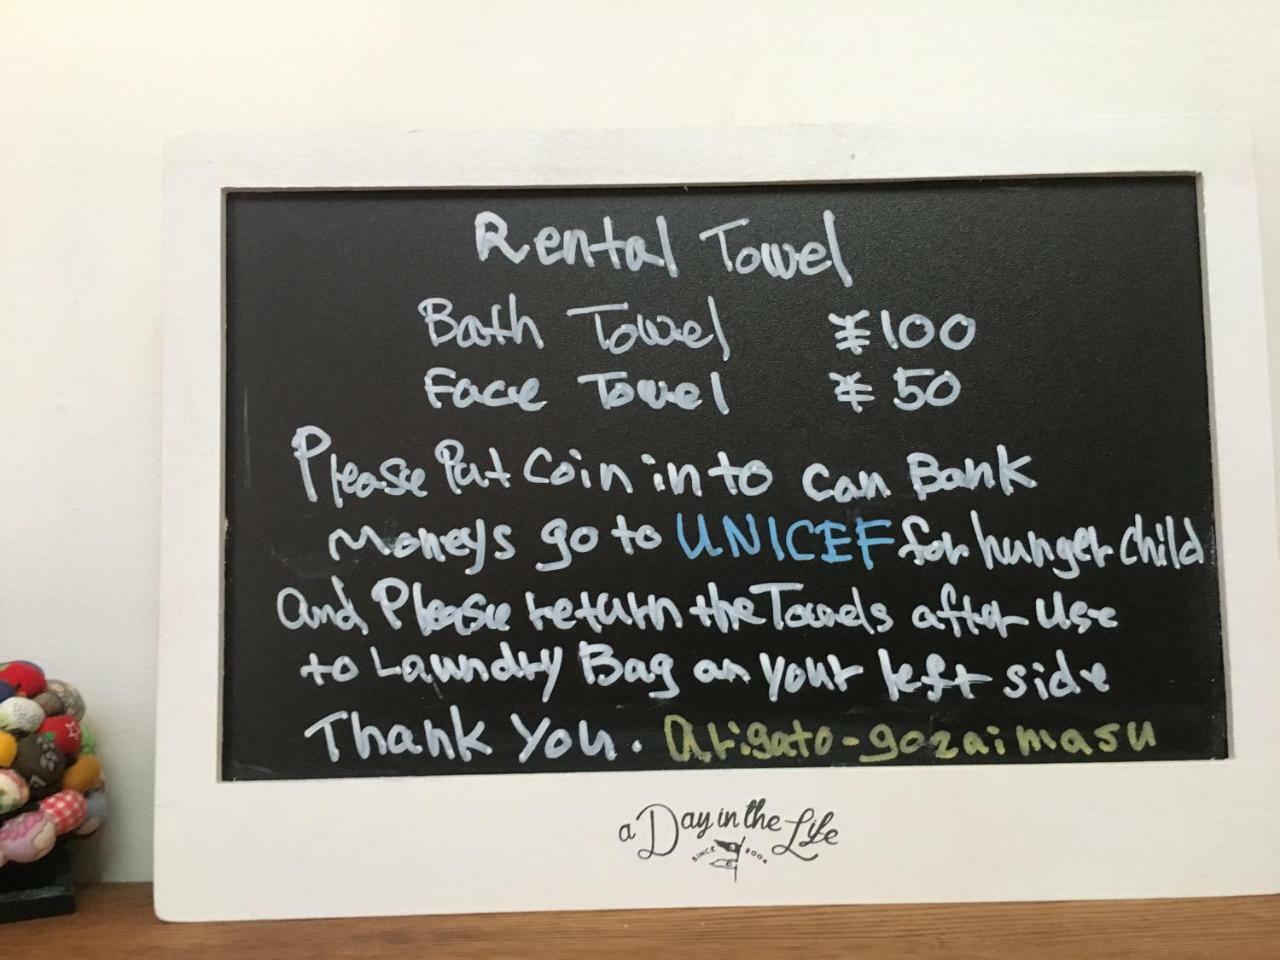 Rental Towel
Bath Towel ¥100
Face Towel ¥50
Please Put Coin in to Can Bank
Moneys go to UNICEF for hunger child
and Please return the Towels after Use
to Lawndry Bag on your left side
Thank You. Arigato-gozaimasu
a Day in the Life
SINCE 2004